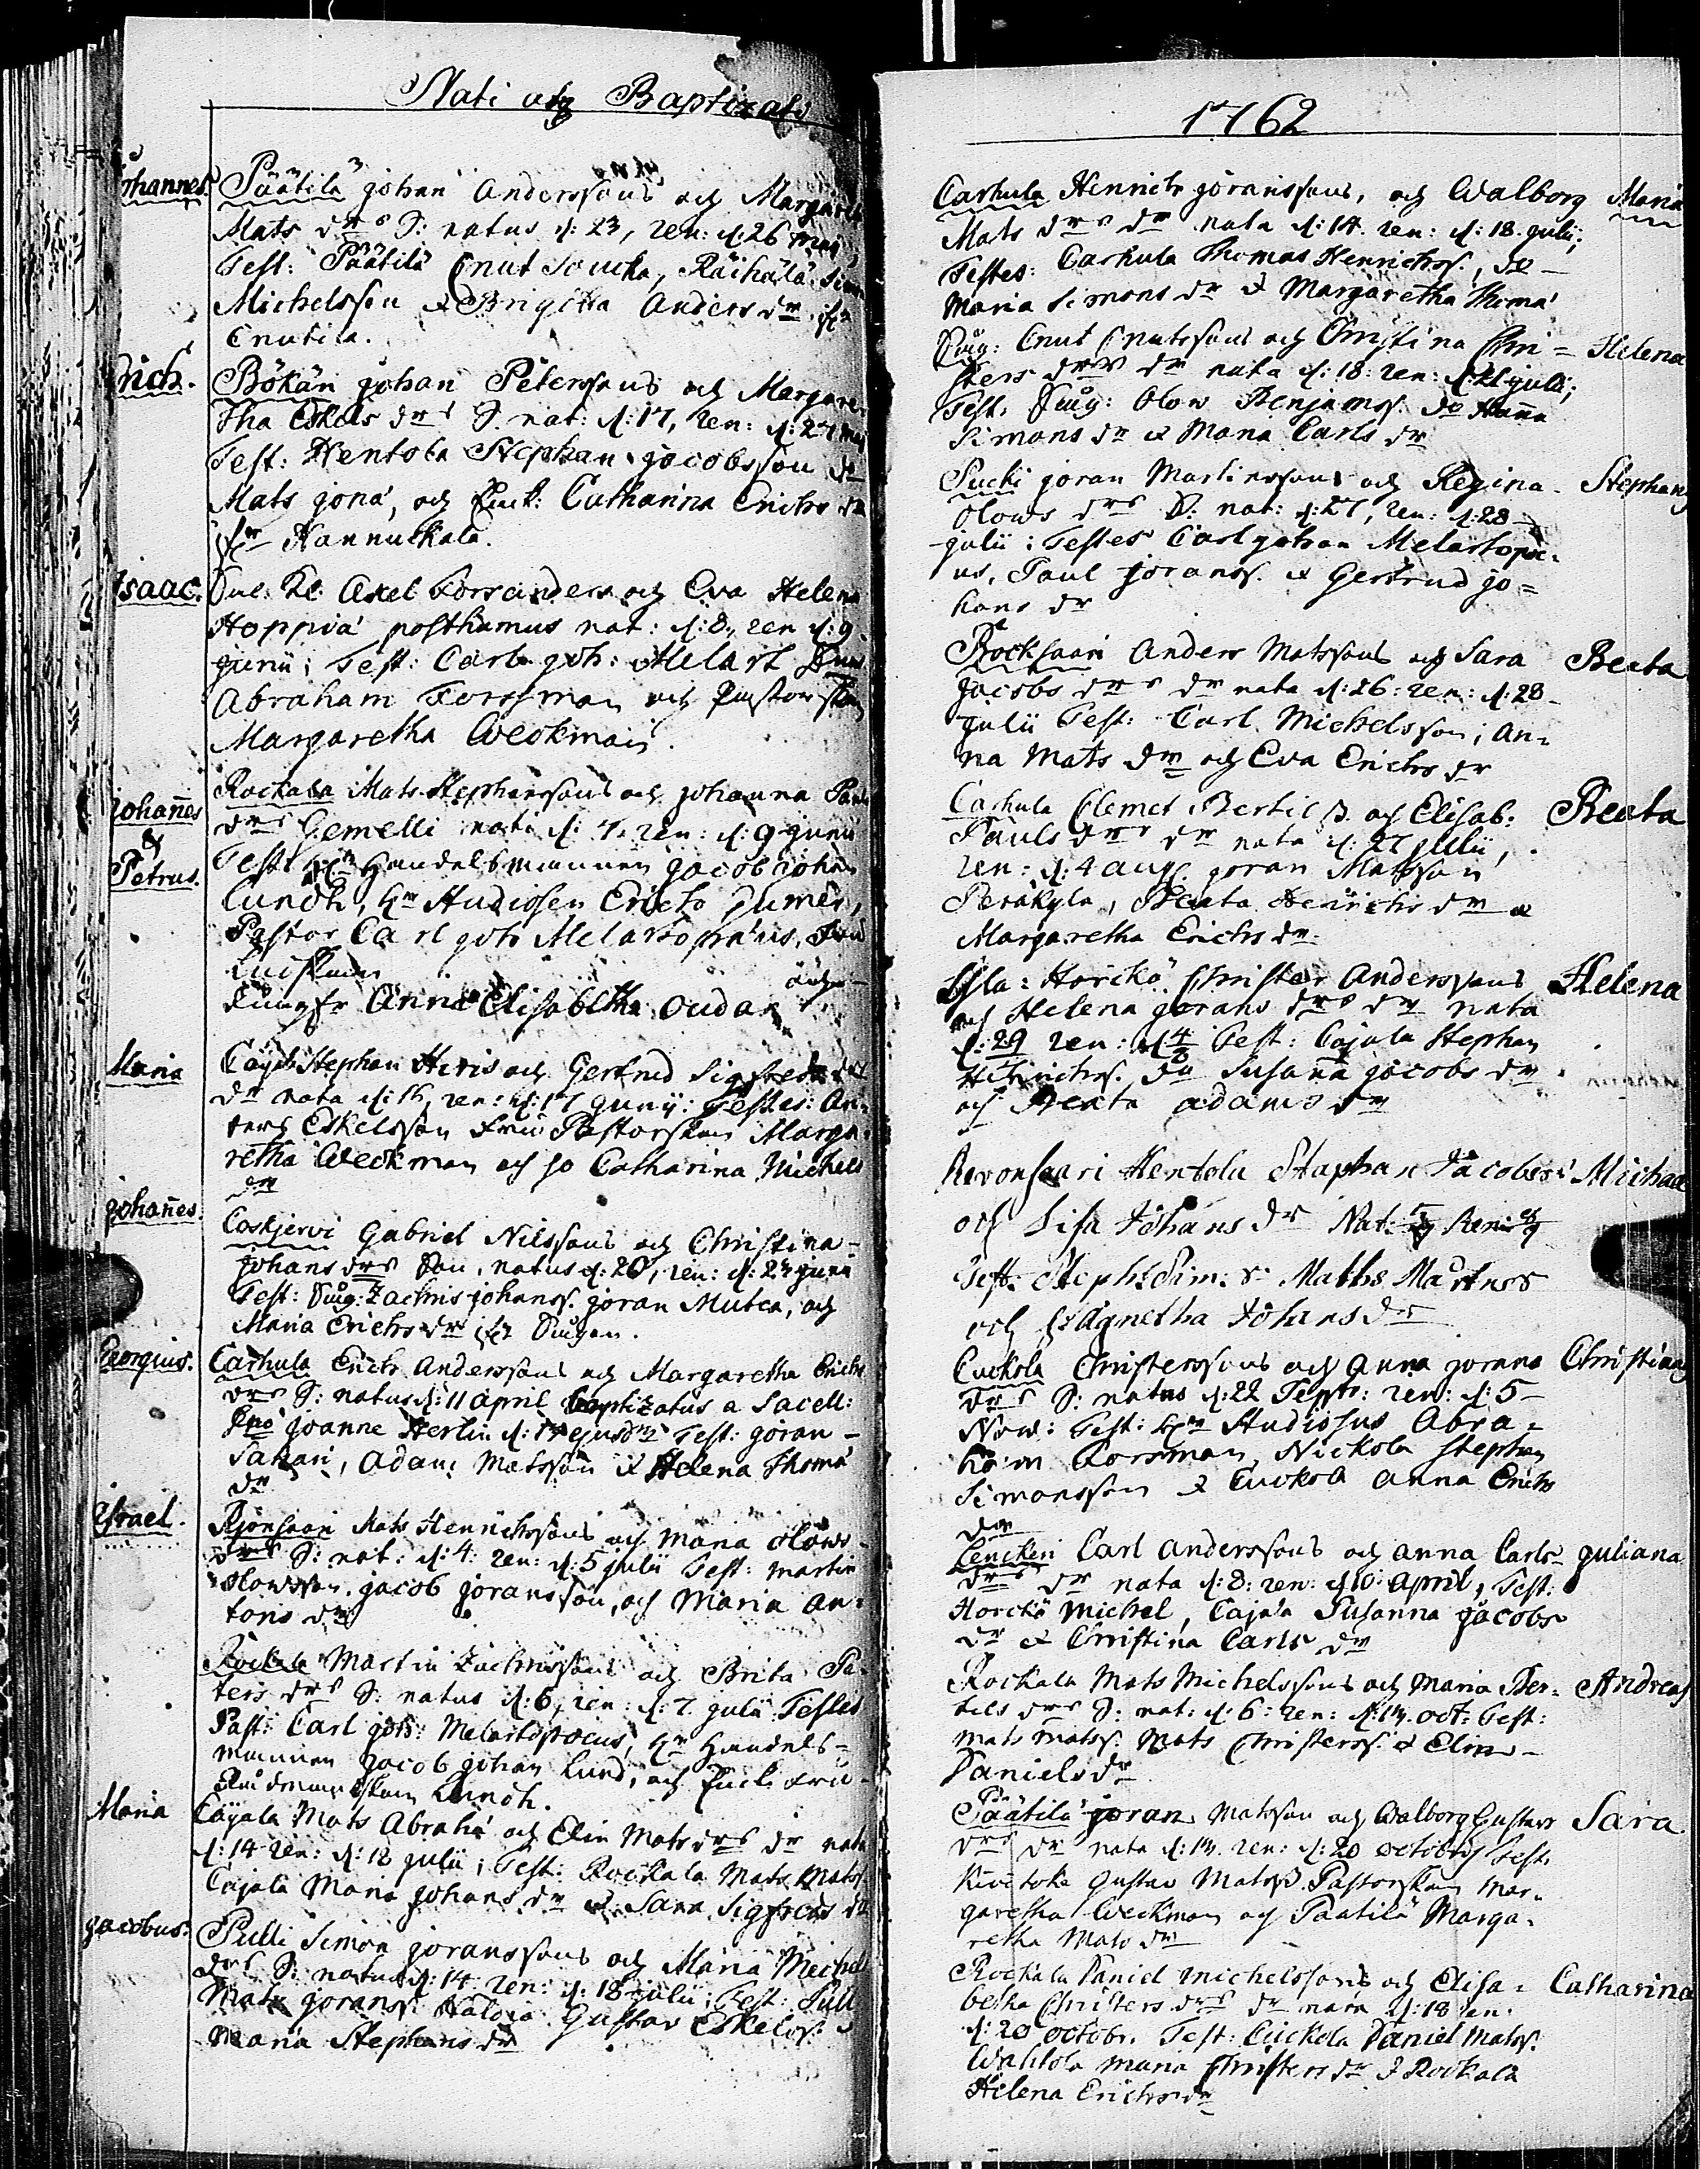 Nati atq Baptizati
Johannes. Päätilä johan Anderssons och Margareta
Mats drs S: natus d: 23, ren: d: 26 maji
Test: Päätilä Cnut Soucka, Räihälä Simon
Michelsson & Brigitta Anders dr ifr
Cnutila.
Erich. Bökän johan Peterssons och Margare
tha Eskels drs S. nat: d: 17, ren: d: 27 maj
Test: Hentola Stephan jacobsson do
Mats jona, och Catharina Erichs dr
ifr Hannukala.
Isaac. Axel Forssander och Eva Helena
Hoppia posthumus nat: d: 8, ren d: 9
junii; Test: Carl joh: Melart
Abraham Forssman och Pastorskan
Margaretha Weckman.
Johañes & Petrus. Rockala Mats Stephanssons och johanna
drs Gemelli nati d: 7. ren: d: 9 junii
Test: Hr Handelsmannen jacob johan
Lundh, Hr Studiosen Erich
Pastor Carl joh Melartopæus, Fru
Jungfr Anna Elisabetha
Maria Cajala Stephan Heris och Gertrud Sigfreds drs
dr nata d: 16, ren: d: 17 junij: Testes: An-
ders Eskelsson Fru Pastorskan Marga-
retha Weckman och Catharina Michels
dr
Johañes. Coskjervi Gabriel Nilssons och Christina
johans drs Son, natus d: 20, ren: d: 24 junii
Test: Zachris johanss. joran Mutea, och
Maria Erichs dr ifr
Georgius. Carhula Erich Anderssons och Margaretha Erichs
drs S: natus d: 11 april baptizatus a Sacell:
Dno joanne Herlin d: 17 ejusdm Test: joran
Sakari, Adam Matsson & Helena Thoma
dr
Israel. Rjönsaari Mats Henrichssons och Maria Olows
drs S: nat: d: 4: ren: d: 5 julii Test: Martin
Olowsson. jacob joransson, och Maria An-
tons dr
Rockala Martin Zachrissons och Brita Pe-
ters drs S: natus d: 6, ren: d: 7 julii Testes
Past: Carl joh: Melartopoeus, Hr Handels-
mannen jacob johan Lund, och Fru
Lundh.
Maria Cajala Mats Abraha och Elin Mats drs dr nata
d: 14 ren: d: 18 julii; Test: Rockala Mats Mats.
Cajala Maria johans dr & Sara Sigfreds dr
Jacobus. Pulli Simon joranssons och Maria Michels
drs S: natus d: 14 ren: d: 18 julii; Test: Pulli
Mats joranss. Haloia Gustav Eskelss. &
Maria Stephans dr
1762
Carhula Henrich joranssons, och Walborg Maria
Mats drs dr nata d: 14. ren: d: 18. julii;
Testes: Carhula Thomas Henrichss., do
Maria Simons dr & Margaretha Thoma
Cnut Cnutssons och Christina Chri= Helena
sters drs dr nata d: 18: ren: d: 21 julii;
Test: Olow Benjamss. do Hanna
Simons dr & Maria Carls dr
Pucki joran Martinssons och Regina Stephan
Olows drs S: nat: d: 27, ren: d: 28
julii: Testes Carl johan Melartopæ-
us, Paul joranss. & Gertrud jo=
hans dr
Rocksaari Anders Matssons och Sara Beata
jacobs drs dr nata d: 26: ren: d: 28
julii Test: Carl Michelsson; An-
na Mats dr och Eva Erichs dr
Carhula Clemet Bertils. och Elisab: Beata
Pauls drs dr nata d: 27 julii,
ren: d: 4 aug. joran Matsson
Peräkylä, Beata Henrichs dr &
Margaretha Erichs dr
Horckö Christer Anderssons Helena
och Helena jorans drs dr nata
d: 29 ren: d 4/8 Test: Cajala Stephan
Henrichss. do Susaña jacobs dr
och Beata Adams dr
Revonsaari Hentola Staphan Jacobss: Michael
och Lisa Johans dr Nat: Ren:
Test: Steph: Sim: S: Maths Mårtens
och Agnetha Johans dr
Cuckola Christerssons och Anna jorans Christian
drs S: natus d: 22 Septr: ren: d: 5
Now: Test: Hr Studiosus Abra=
ham Forsman, Nickola Stephan
Simonsson & Cuckola Anna Erichs
dr
Lenckeri Carl Anderssons och Anna Carls Juliana
drs dr nata d: 8: ren: d 10: april, Test:
Horckö Michel, Cajala Susanna jacobs
dr & Christina Carls dr
Rockala Mats Michelssons och Maria Ber- Andreas
tils drs S: nat: d: 6: ren: d: 17. oct: Test:
Mats Matss: Mats Christerss. & Elin
Daniels dr
Päätilä joran Matsson och Walborg Gustavs Sara
drs dr nata d: 17. ren: d: 20 octobris Test:
Gustav Matss. Pastorskan Mar-
garetha Weckman och Paatilä Marga-
retha Mats dr
Rockala Daniel Michelssons och Elisa- Catharina
betha Christers drs dr nata d: 18 ren:
d: 20 octobr. Test: Cuckola Daniel Matss.
Wahlola Maria Christers dr & Rockala
Helena Erichs dr